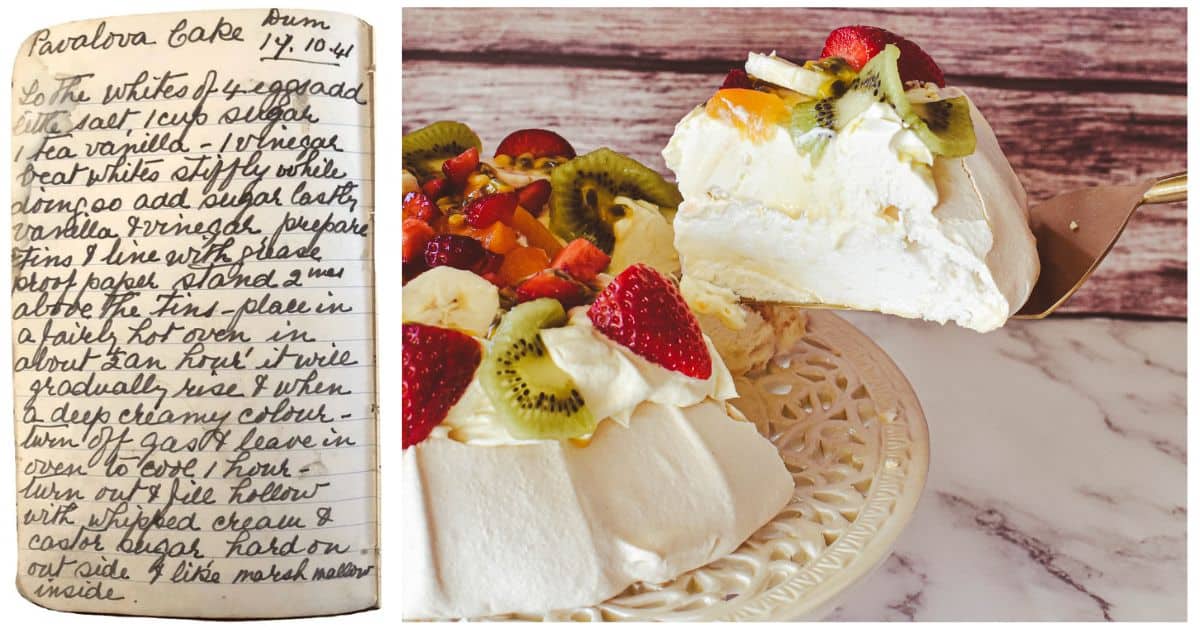 Pavalova Cake Dum
17.10.41
To the whites of 4 eggs add
little salt 1 cup sugar
1 tea vanilla - 1 vinegar
beat whites stiffly while
doing so add sugar lastly
vanilla & vinegar prepare
tins & line with grease
proof paper stand 2 ins
above the tins - place in
a fairly hot oven in
about ½ an hour it will
gradually rise & when
a deep creamy colour -
turn off gas & leave in
oven to cool 1 hour -
turn out & fill hollow
with whipped cream &
castor sugar hard on
out side & like marsh mallow
inside.